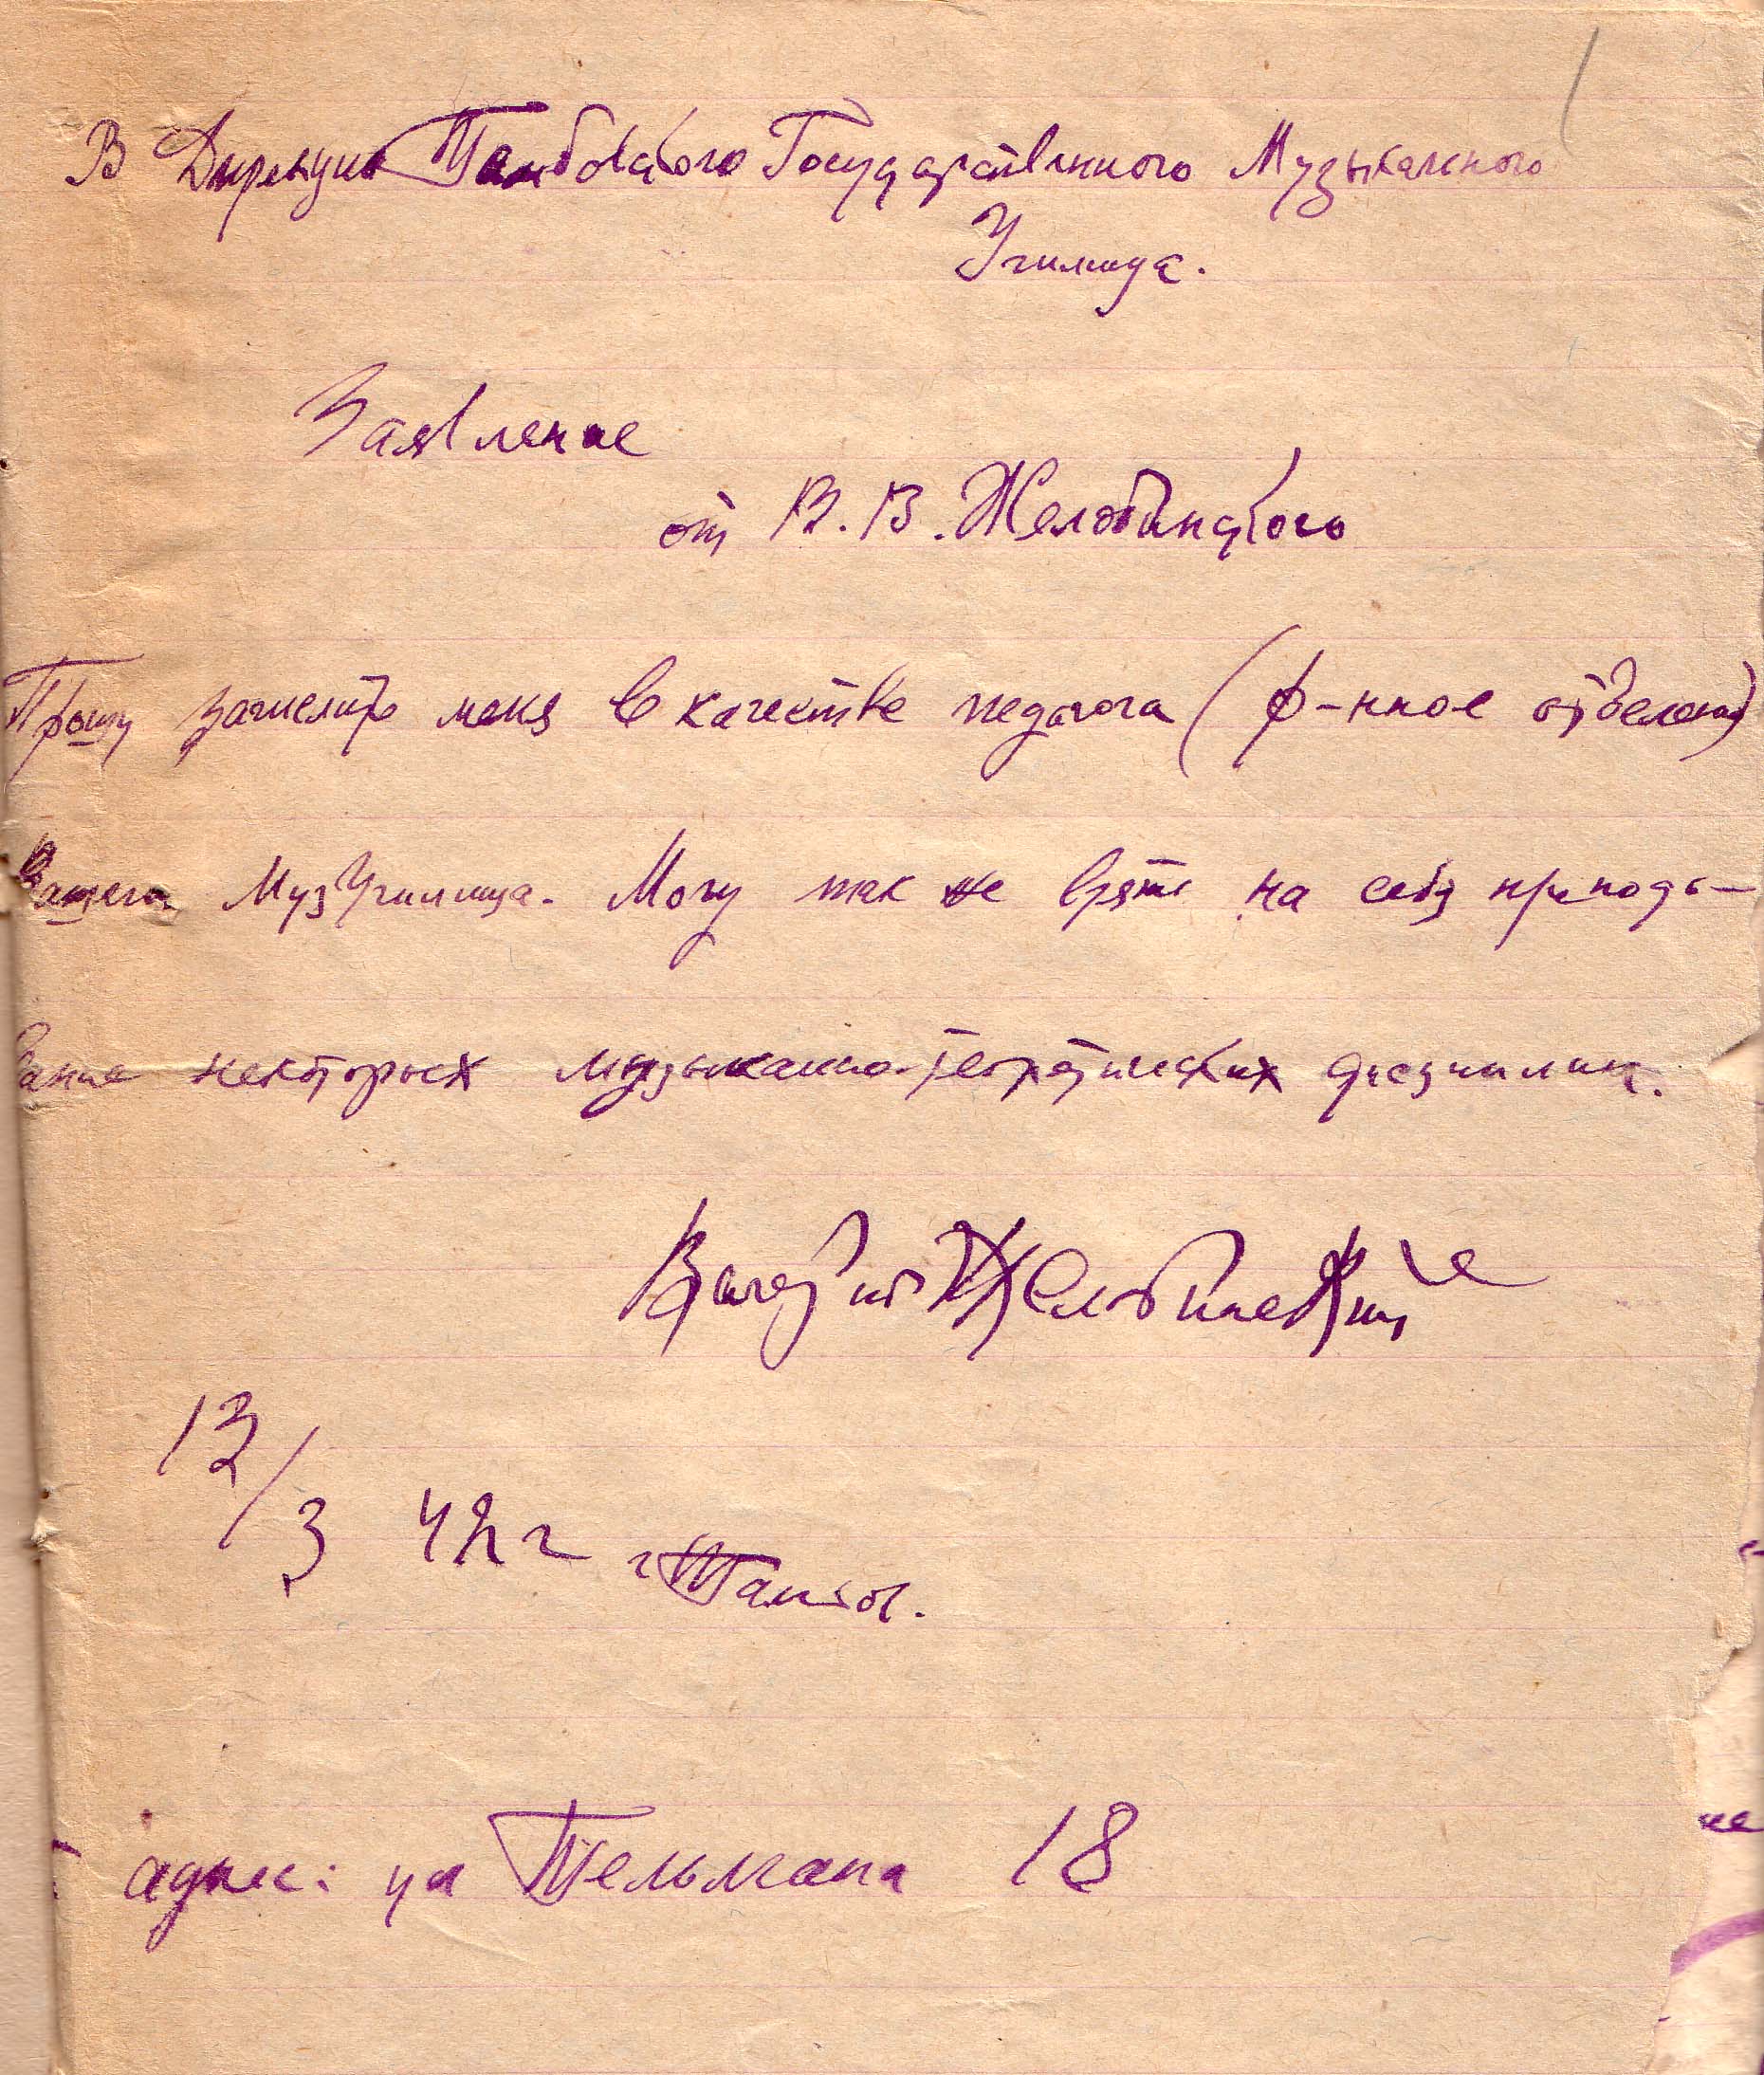 В Дирекцию Тамбовского Государственного Музыкального
Училища.
Заявление
от В. В. Желобинского
Прошу зачислить меня в качестве педагога (ф-нное отделение)
Вашего МузУчилища. Могу так же взять на себя препода-
вание некоторых музыкально-теоретических дисциплин.
Валерий Желобинский
12/3 42 г г Тамбов.
адрес: ул Тельмана 18